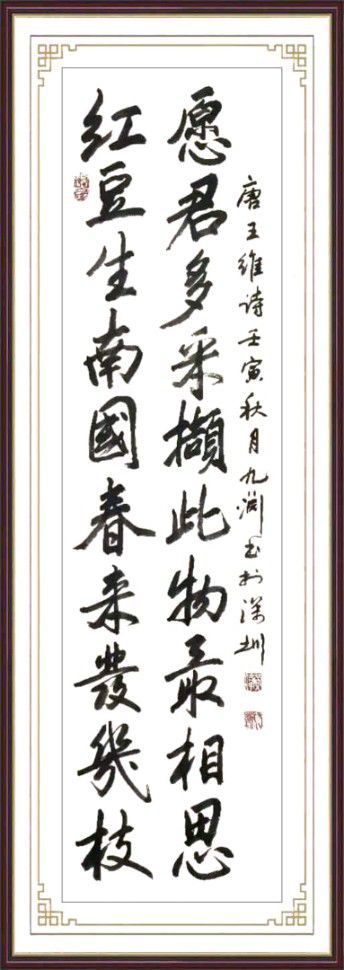 红豆生南國春来發幾枝
愿君多采擷此物最相思
唐王维诗壬寅秋月九润书于深圳